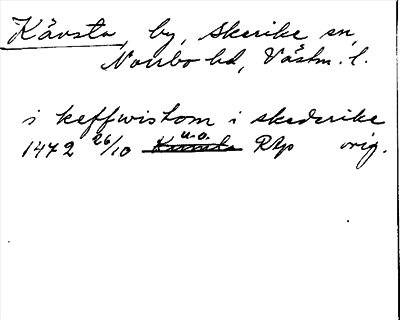 Kävsta, by, Skerike sn,
Norrbo hd, Västm. l.
i keffwistom i skederike
1472 26/10 u.o. RAp orig.